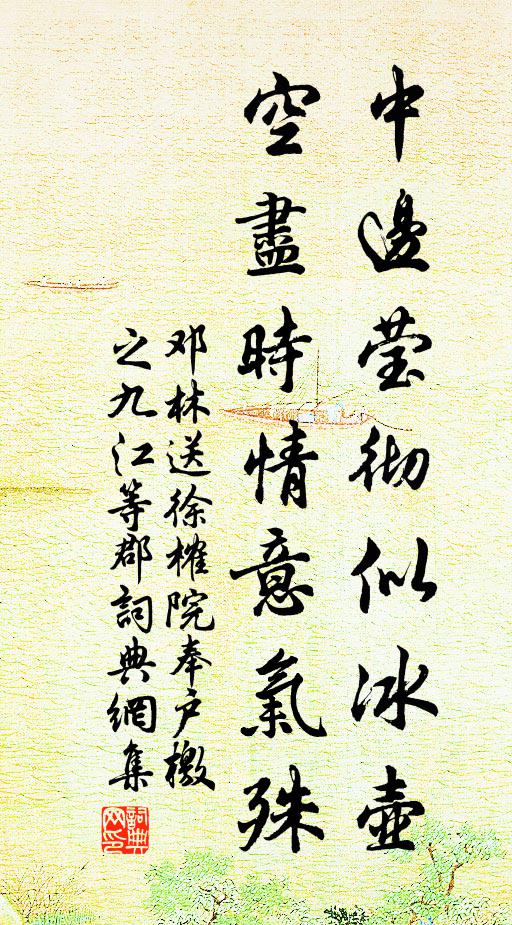 中邊莹彻似冰壺
空盡時情意氣殊
邓林送徐榷院奉户檄
之九江等郡詞典網集
詞典網印